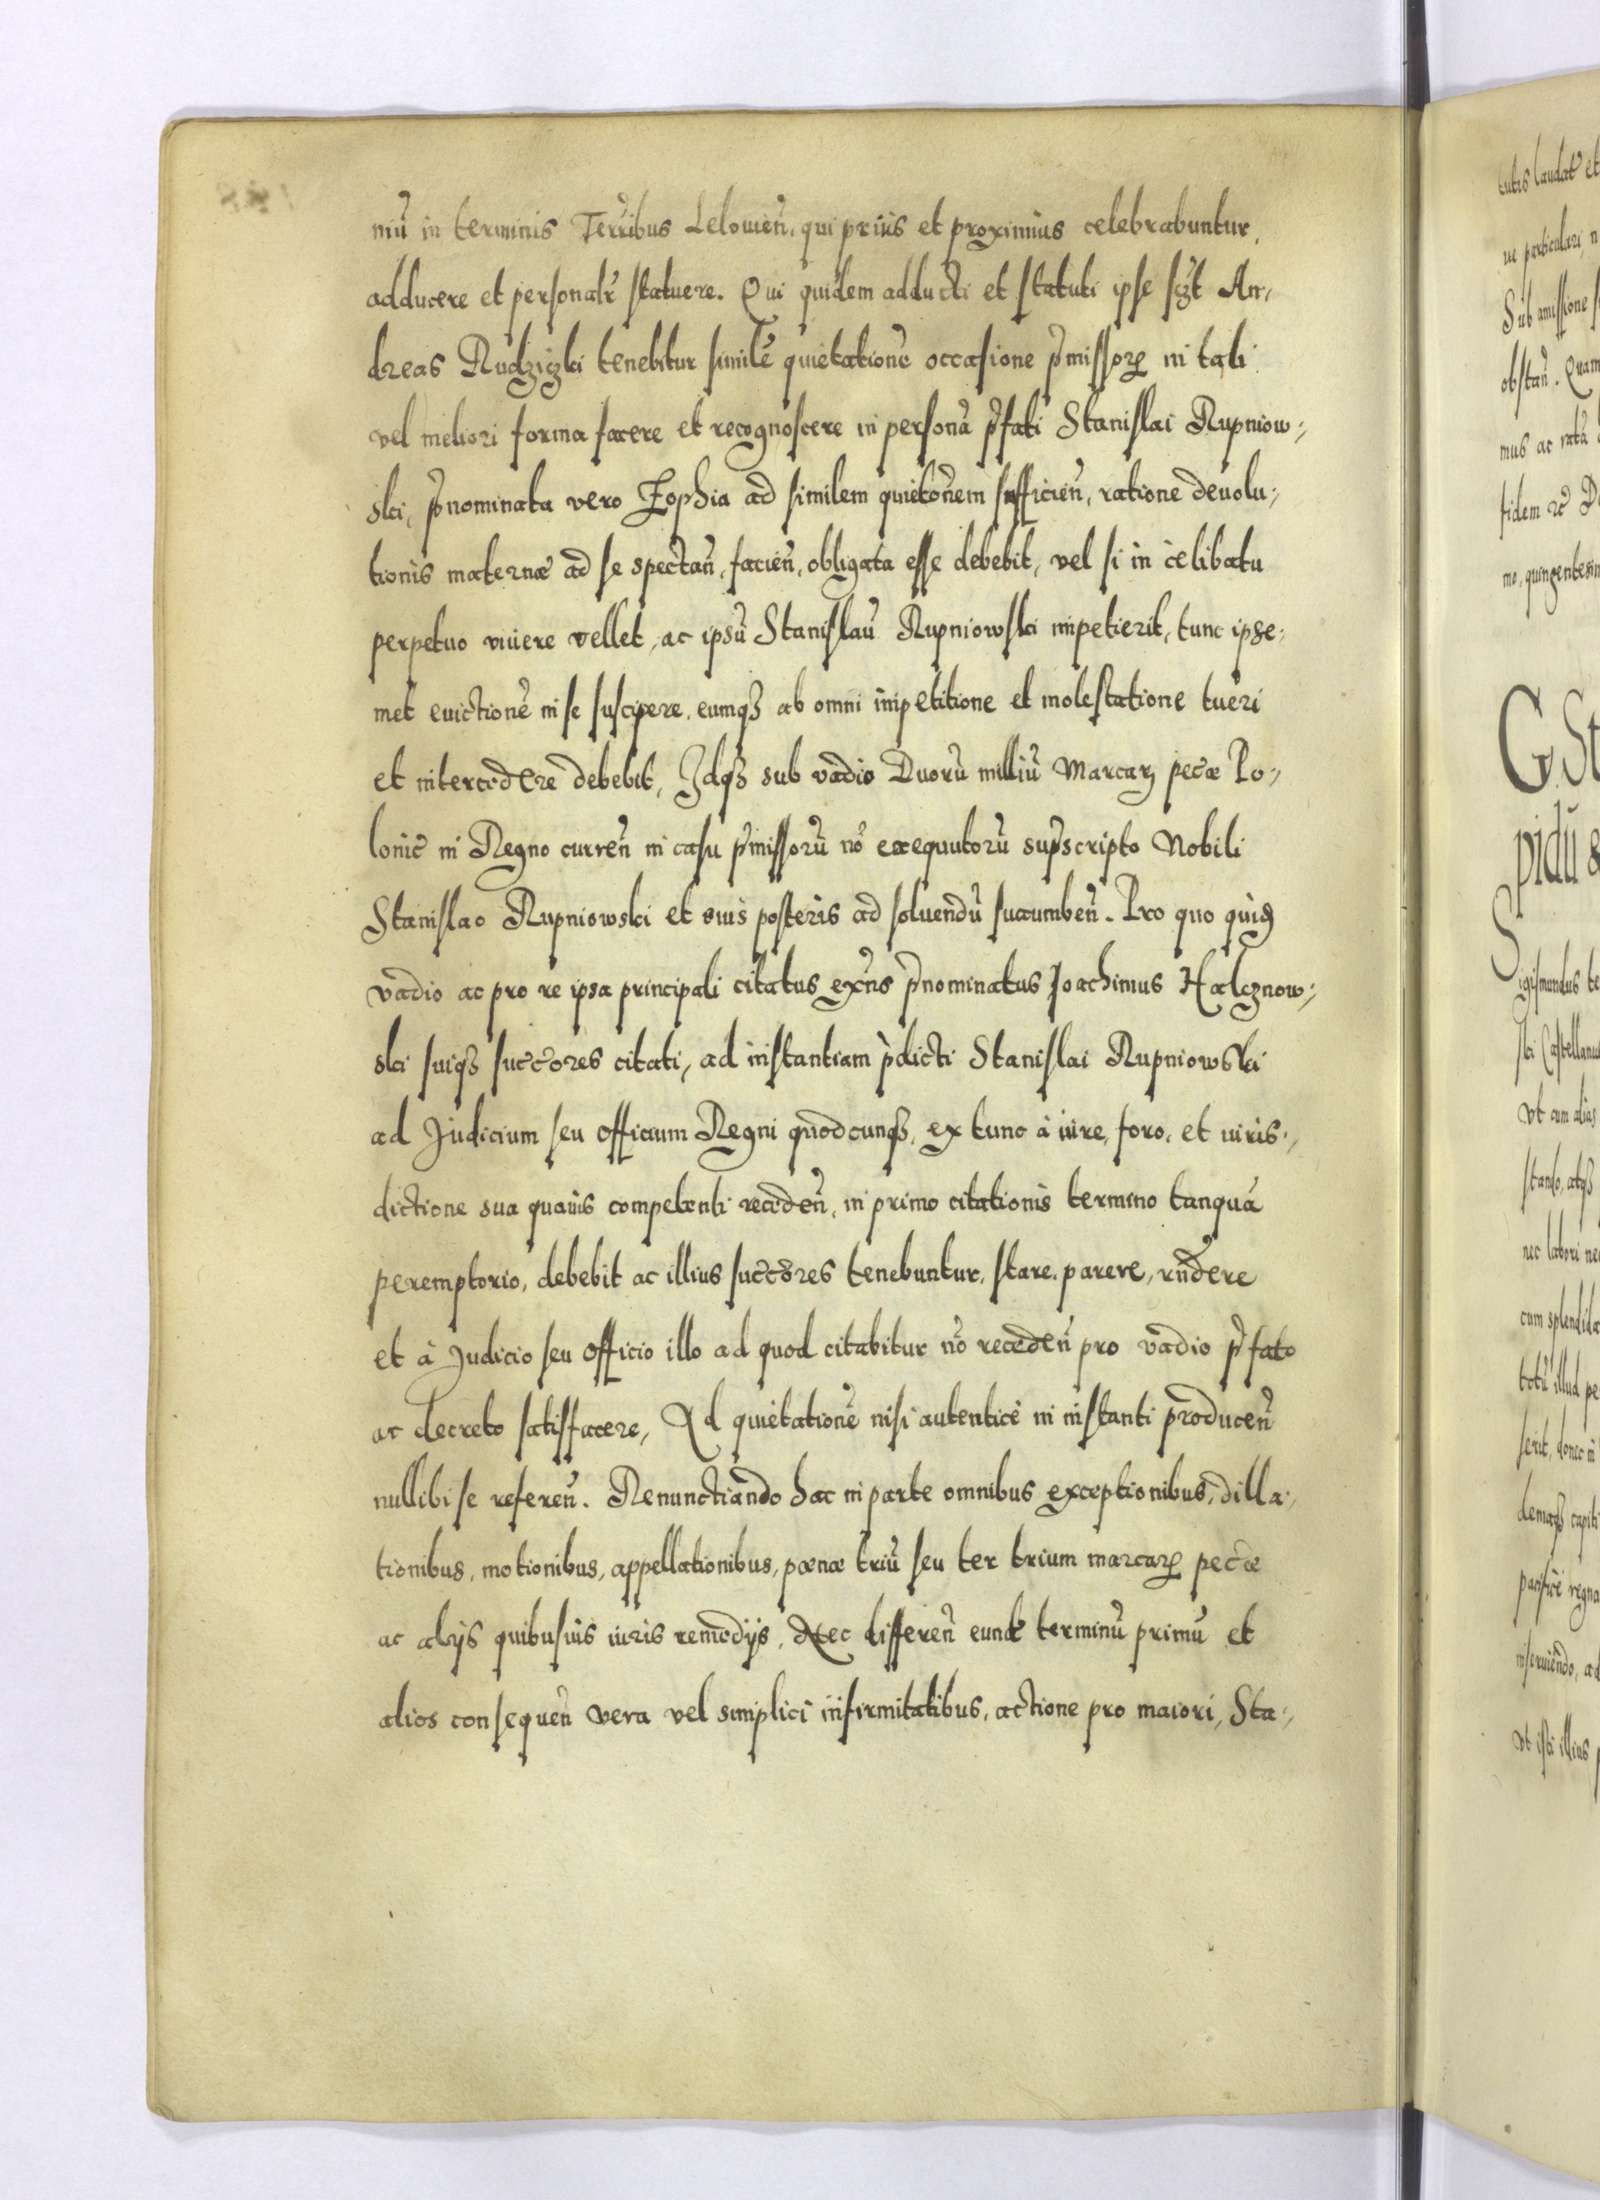 niū in terminis Terribus Lelovień. qui prius et proximius celebrabuntur,
adducere et personalr statuere. Qui quidem adducti et statuti ipse sczt An,
dreas Rudziczki tenebitur simile quietatione occasione pmissorꝝ in tali
vel meliori forma facere et recognoscere in persona pfati Stanislai Rupniow-,
ski, pnominata vero Zophia ad similem quietōnem sufficień, ratione deuolu-,
tionis maternæ ad se spectań, facień, obligata esse debebit, vel si in cælibatu
perpetuo viuere vellet, ac ipsū Stanislaū Rupniowski impetierit, tunc ipse-
met euictionē in se suscipere, eumqꝫ ab omni impetitione et molestatione tueri
et intercedere debebit, Idqꝫ sub vadio Duorū milliū Marcarꝝ pecæ Po-,
lonic̄ in Regno curreń in casu pmissorū nō exequutorū supscripto Nobili
Stanislao Rupniowski et suis posteris ad soluendū succumbeń. Pro quo quidꝫ
vadio ac pro re ipsa principali citatus exn̄s pnominatus Joachimus Halcznow-,
ski suiqꝫ succores citati, ad instantiam pdicti Stanislai Rupniowski
ad Judicium seu officium Regni quodcunqꝫ, ex tunc à iure, foro, et iuris-,
dictione sua quauis competenti recedeń, in primo citationis termino tanquā
peremptorio, debebit ac illius succores tenebuntur, stare, parere, rn̄dere
et à Judicio seu officio illo ad quod citabitur nō recedeń pro vadio pfato
ac decreto satisfacere, Ad quietationē nisi autenticè in instanti produceń
nullibi se refereń. Renunctiando hac in parte omnibus exceptionibus, dilla-,
tionibus, motionibus, appellationibus, pœnæ triū seu ter trium marcarꝝ pecæ
ac alijs quibusuis iuris remedijs, Nec differeń eundē terminū primū et
alios consequeń vera vel simplici infirmitatibus, actione pro maiori, Sta-,